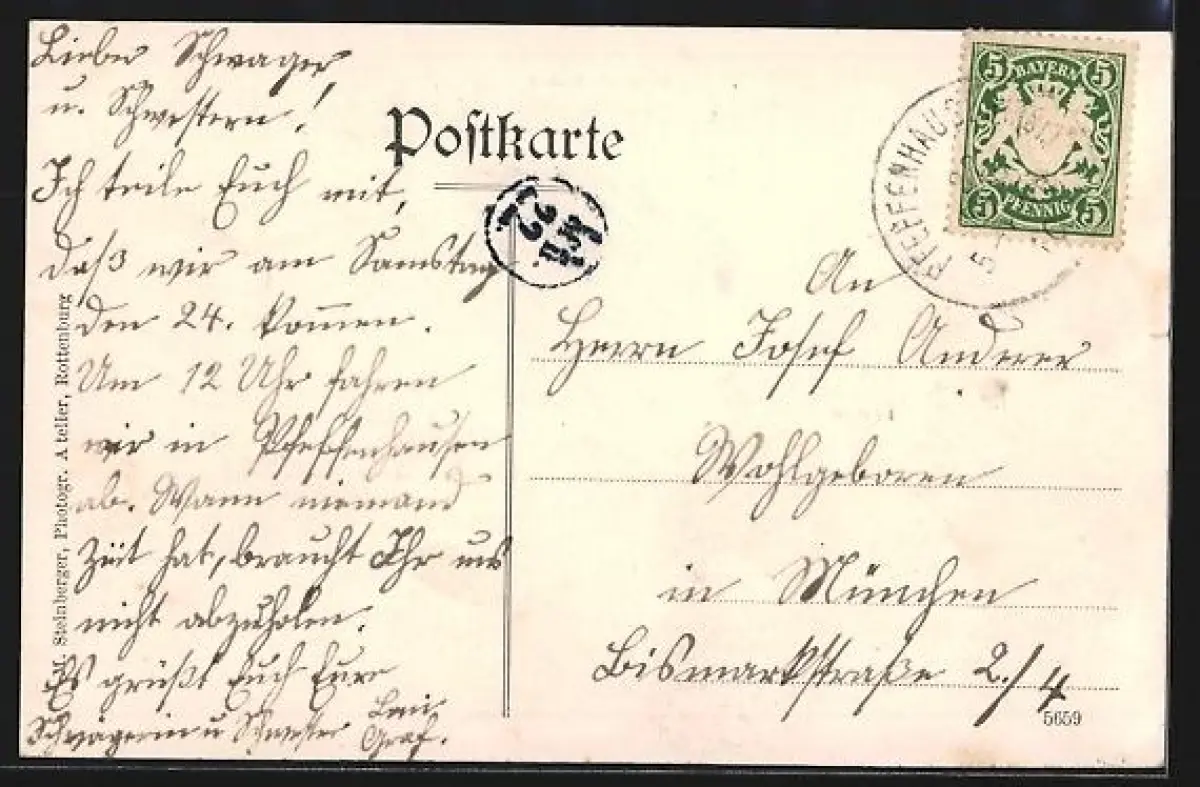 Lieber Schwager,
u. Schwestern!
Ich teile Euch mit,
daß wir am Samstag
den 24. kom̄en.
Um 12 Uhr fahren
wir in Pfeffenhausen
ab. Wann niemand
Zeit hat, braucht Ihr uns
nicht abzuholen.
Es grüßt Euch Eure
Schwägerin u Schwester Leni
Graf.
M. Steinberger, Photogr. Atelier, Rottenburg
Postkarte
5 BAYERN 5
5 PFENNIG 5
PFEFFENHAUS
An
Herrn Josef Anderer
Wohlgeboren
in München
Bismarkstraße 2./4
5659